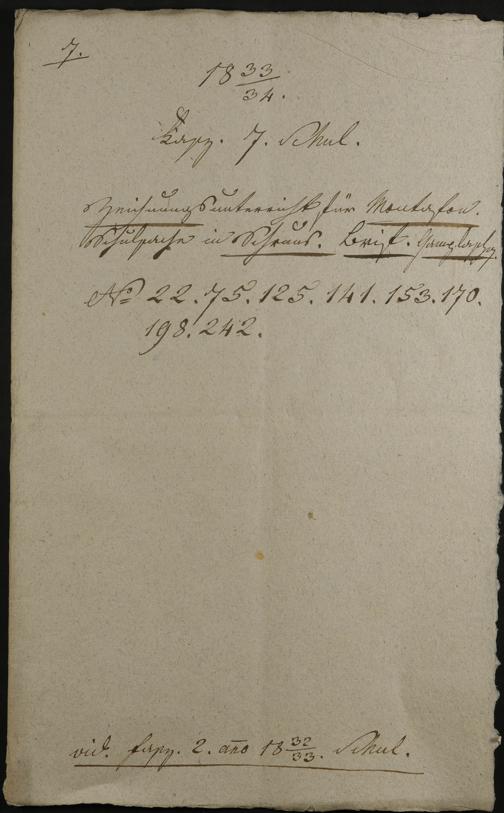 7.
18 33/34.
Fasz. 7. Schul.
Zeichnungsunterricht für Montafon.
Schulsache in Schruns. Brist.
No 22. 75. 125. 141. 153. 170.
198. 242.
vid. fasz. 2. año 18 32/33. Schul.